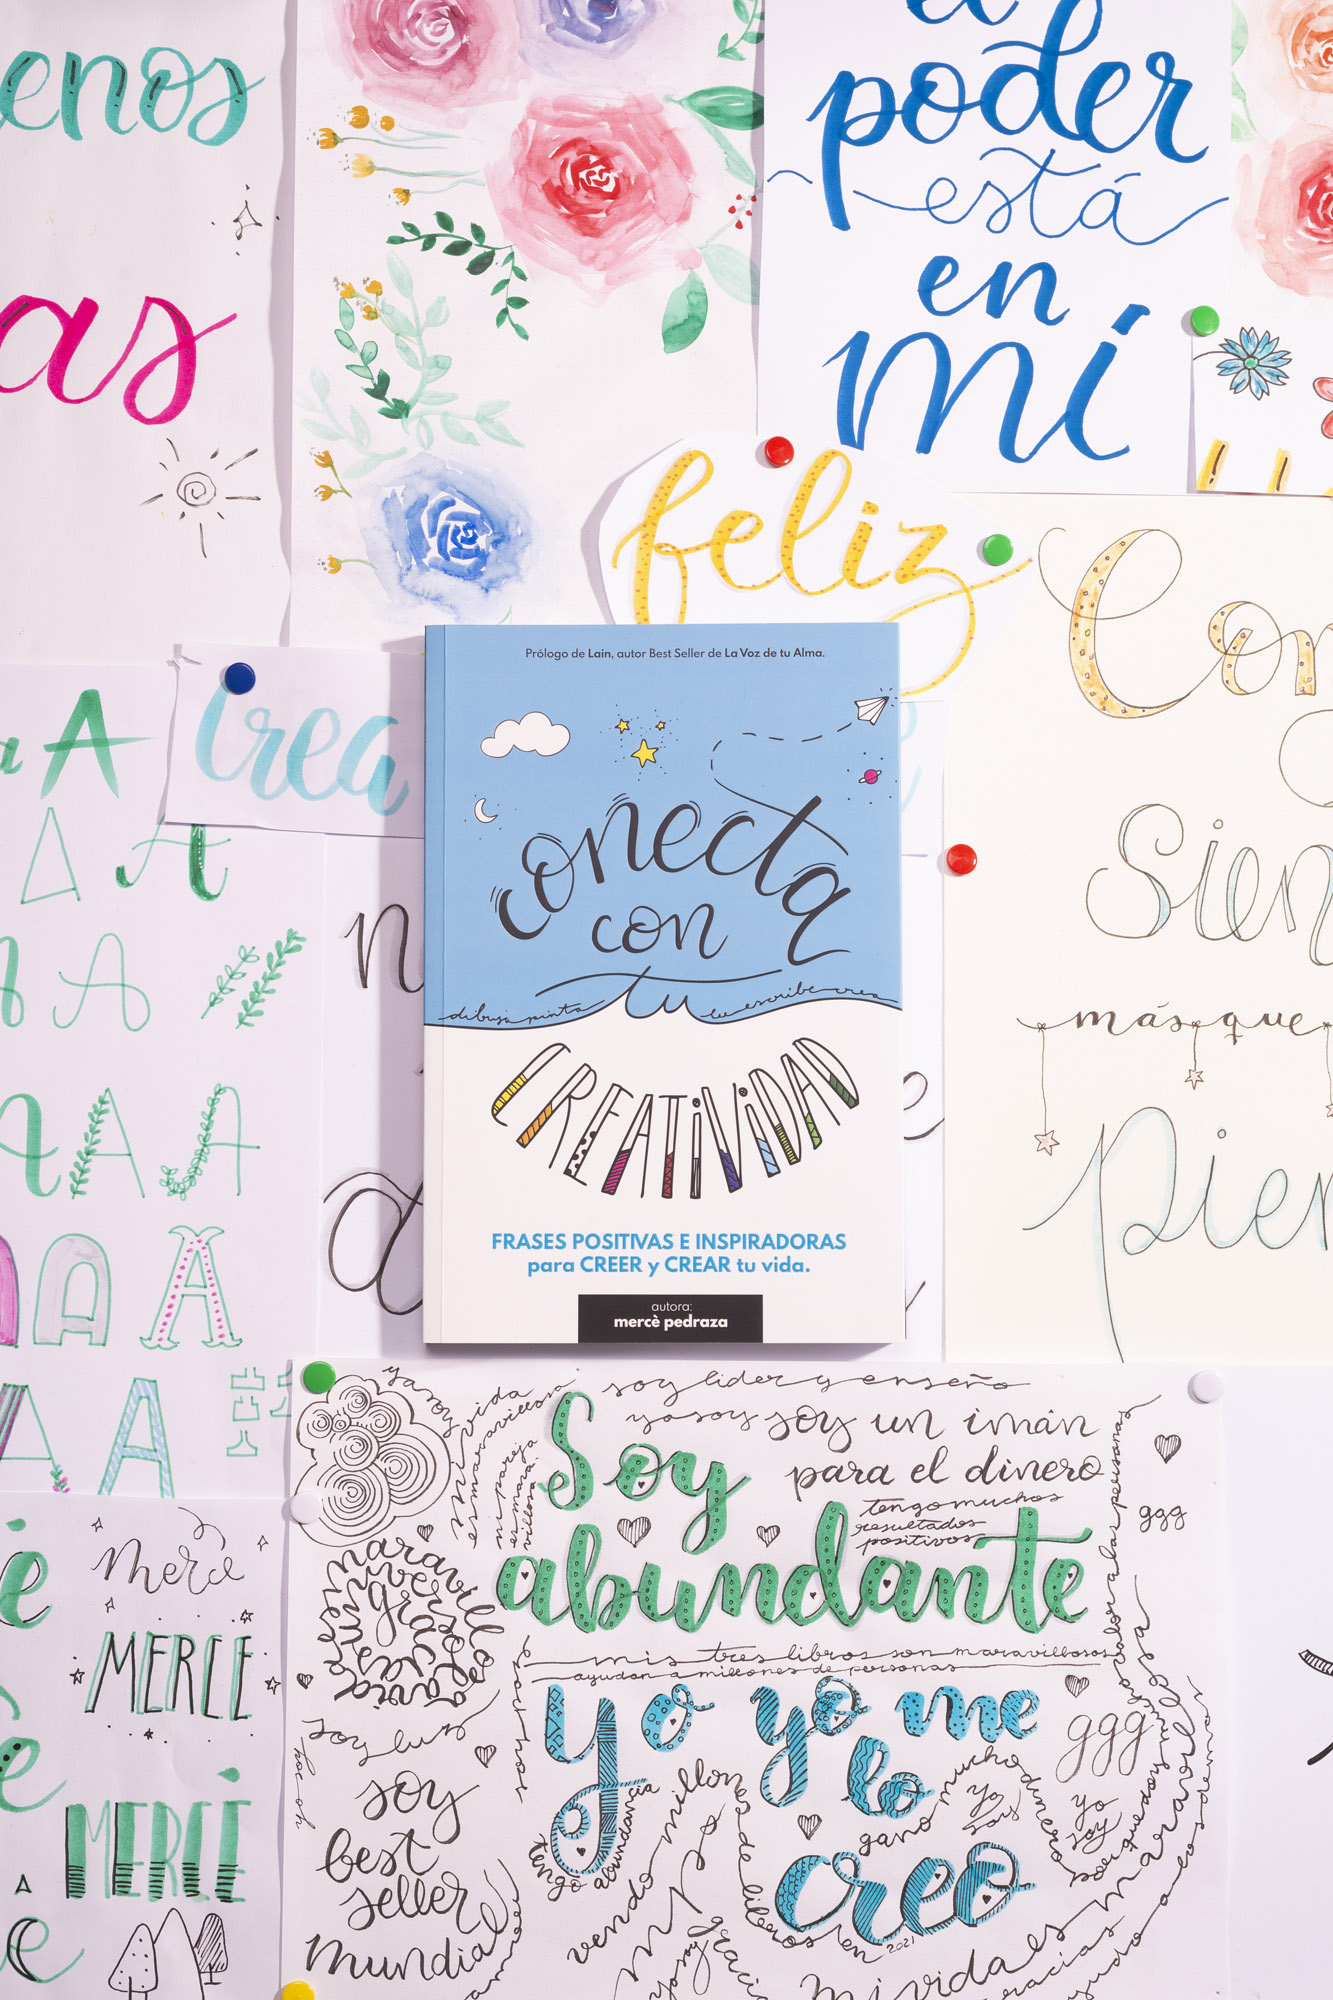 enos
as
el
poder
está
en
mí
feliz
Crea
Con
Sien
más que
Pien
Prólogo de Lain, autor Best Seller de La Voz de tu Alma.
conecta
con
tu
dibuja pinta
lee escribe crea
CREATIVIDAD
FRASES POSITIVAS E INSPIRADORAS
para CREER y CREAR tu vida.
autora:
mercè pedraza
A
A
A
A
A
A
A
A
A
merce
MERCE
MERCE
yo soy
mi vida
es maravillosa
mi pareja
es mara
villosa
soy lider y enseño
yo soy soy un imán
para el dinero
Soy
abundante
tengo muchos
resultados
positivos
ggg
mis tres libros son maravillosos
ayudan a millones de personas
yo yo me
lo
creo
ggg
soy luz
soy
best
seller
mundial
tengo
abundancia
vendo millones de libros en 2021
gano mucho dinero
yo
soy
yo
soy
yo soy
mi vida es maravillosa